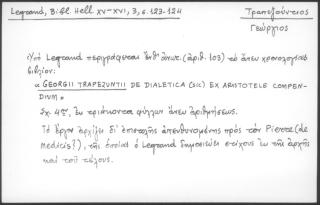 Legrand, Bibl. Hell. XV-XVI, 3, σ. 123-124
Τραπεζούντιος
Γεώργιος
Ὑπὸ Legrand περιγράφεται ἐνθ' ἀνωτ. (ἀριθ. 103) τὸ ἄνευ χρονολογίας
βιβλίον:
« GEORGII TRAPEZUNTII DE DIALETICA (sic) EX ARISTOTELE COMPEN-
DIUM ».
Σχ. 4ον, ἐκ τριάκοντα φύλλων ἄνευ ἀριθμήσεως.
Τὸ ἔργον ἀρχίζει δι' ἐπιστολῆς ἀπευθυνομένης πρὸς τὸν Pierre (de
Medicis?), τῆς ὁποίας ὁ Legrand δημοσιεύει στίχους ἐκ τῆς ἀρχῆς
καὶ τοῦ τέλους.